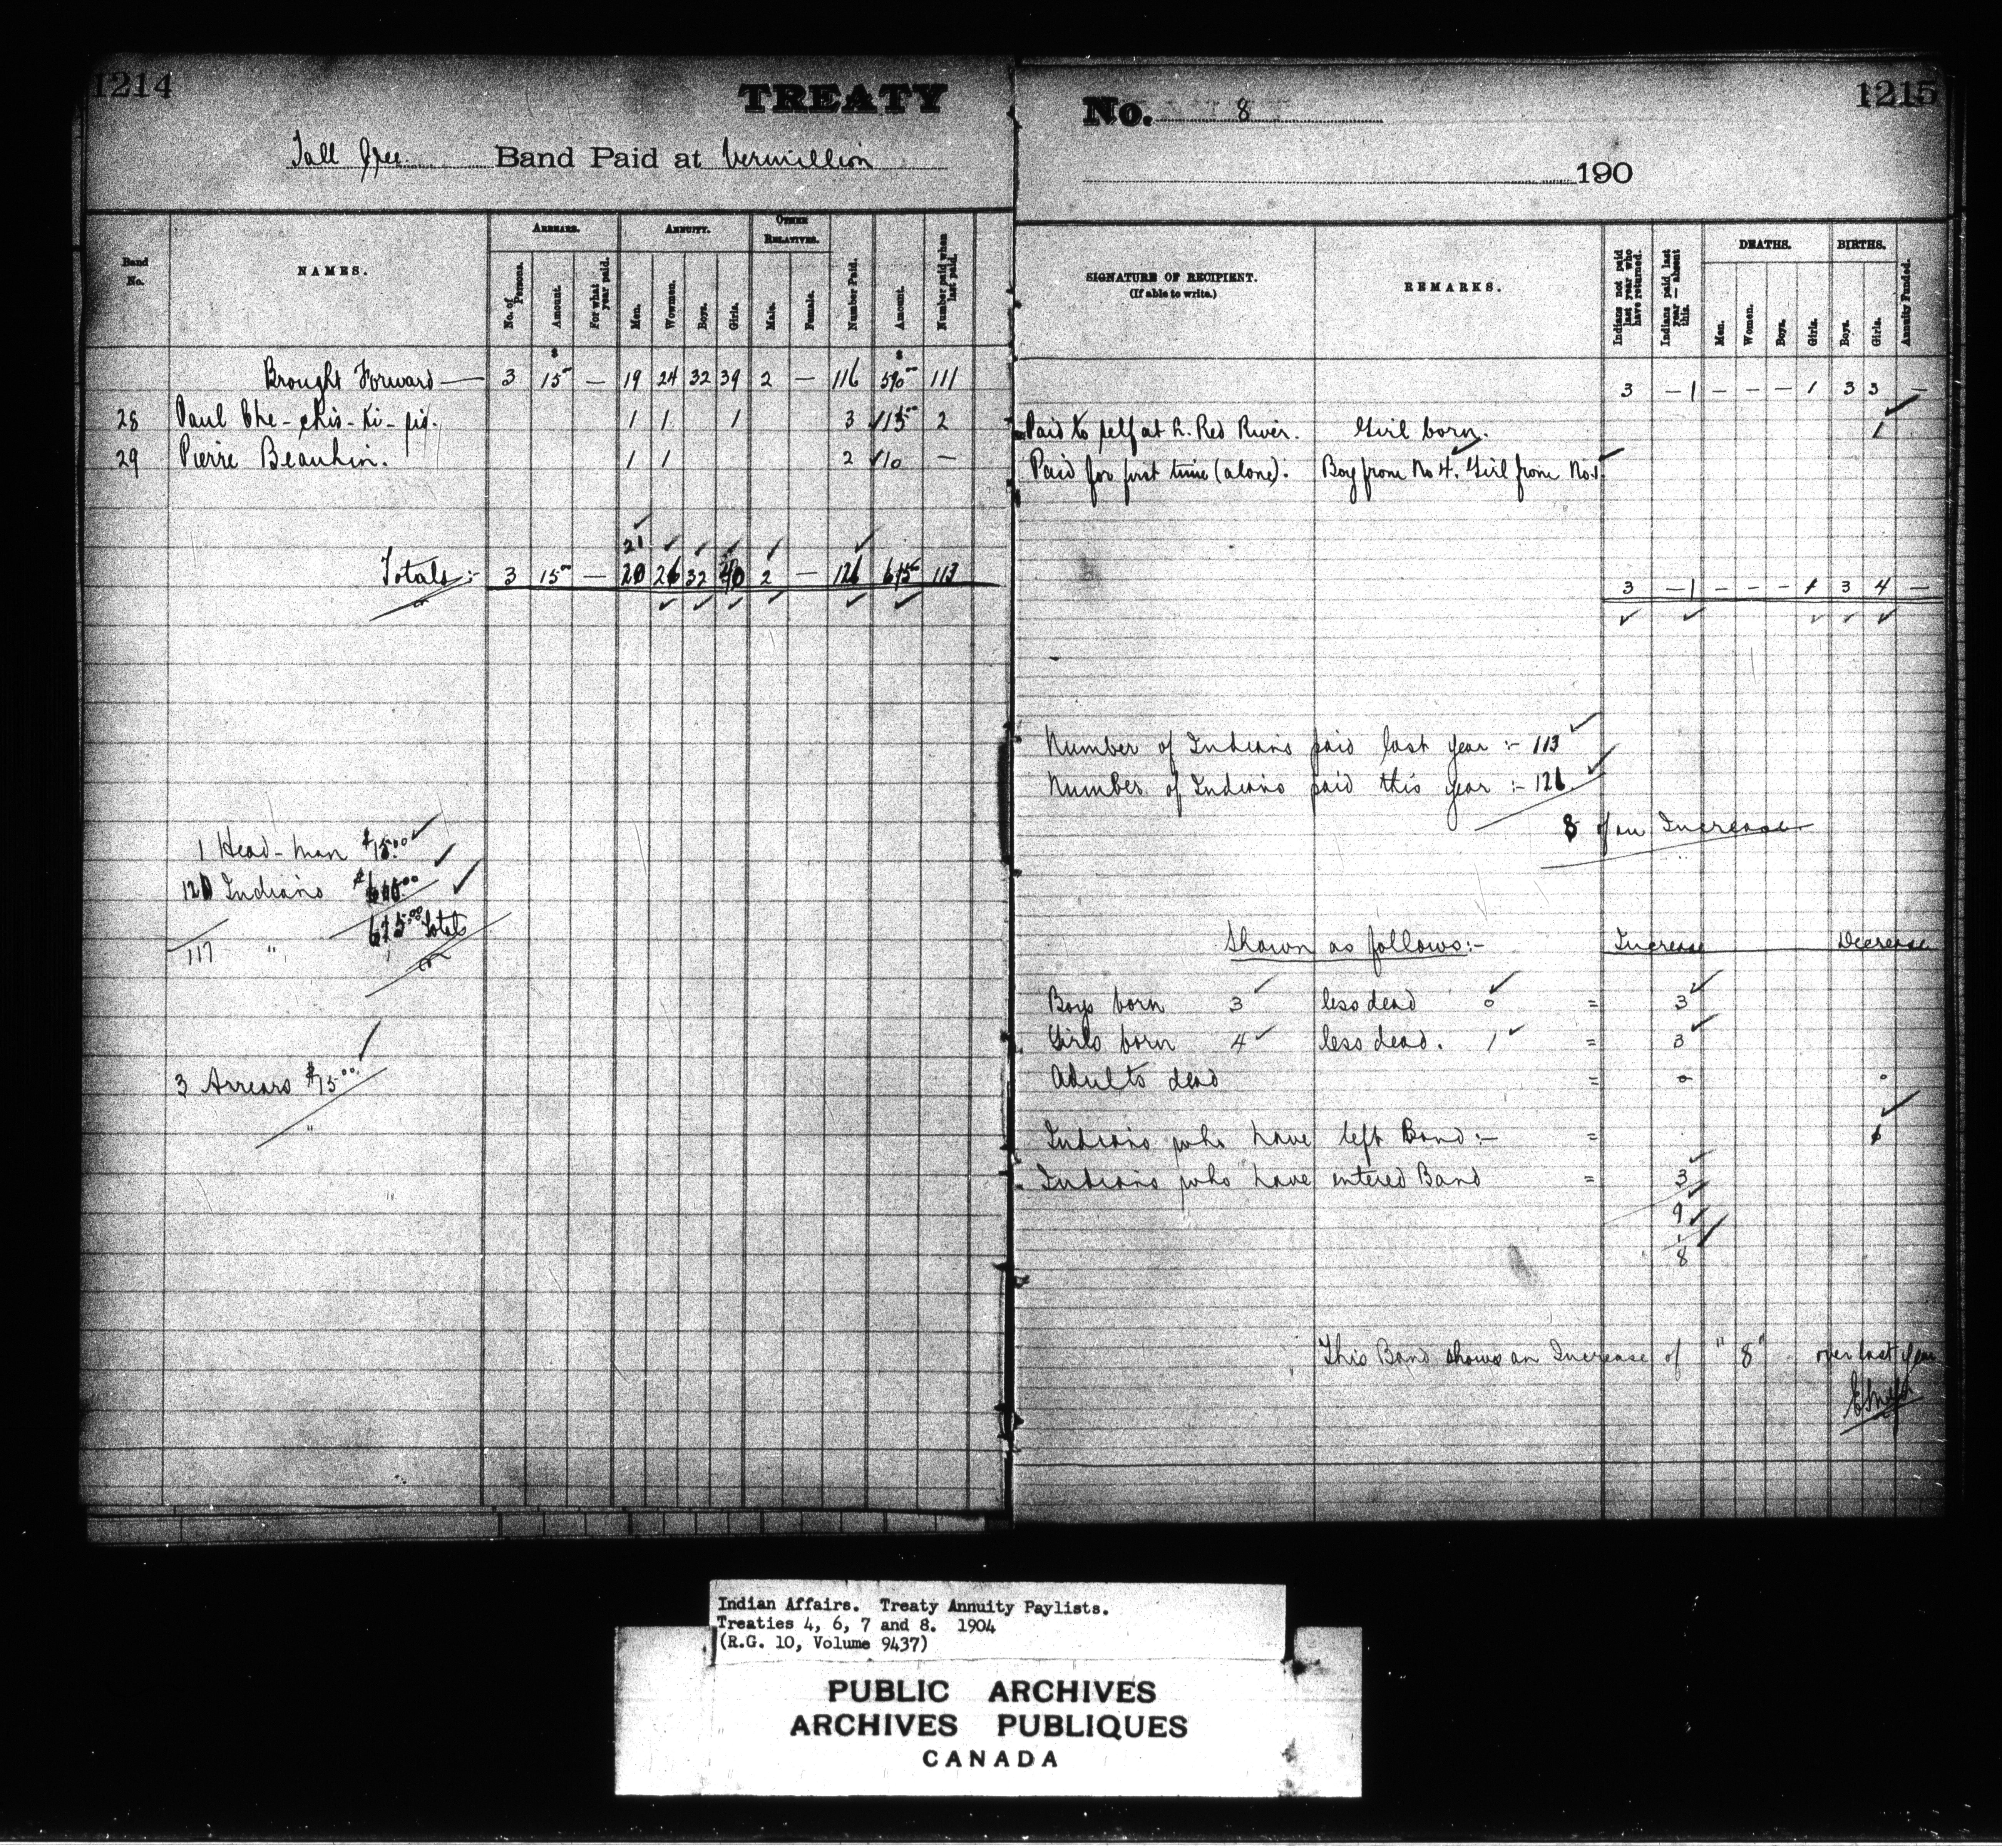 1214
TREATY
Tall Cree Band Paid at Vermillion
Band No.
NAMES.
ARREARS.
No. of Persons.
Amount.
For what year paid.
ANNUITY.
Men.
Women.
Boys.
Girls.
OTHER RELATIVES.
Male.
Female.
Number Paid.
Amount.
Number paid when last paid.
Brought Forward — 3 15 — 19 24 32 39 2 — 116 590 111
28 Paul Che-chis-ki-pis. 1 1 1 3 15 2
29 Pierre Beauhin. 1 1 2 10 —
21
Totals:- 3 15 — 20 26 32 40 2 — 121 615 113
1 Head-man $15.00
120 Indians
615.00 Totals
117 "
3 Arrears $15.00
"
1215
No. 8
190
SIGNATURE OF RECIPIENT.
(If able to write.)
REMARKS.
Indians not paid last year who have returned.
Indians paid last year — absent this.
DEATHS.
Men.
Women.
Boys.
Girls.
BIRTHS.
Boys.
Girls.
Annuity Funded.
3 — 1 — — — 1 3 3 —
Paid to self at L. Red River. Girl born. 1
Paid for first time (alone). Boy from No 4. Girl from No 1.
3 — 1 — — — 1 3 4 —
Number of Indians paid last year :- 113
Number of Indians paid this year :- 121
8 of an Increase
Shown as follows:- Increase Decrease
Boys born 3 less dead 0 = 3
Girls born 4 less dead. 1 = 3
Adults dead = 0 0
Indians who have left Band:- = 1
Indians who have entered Band = 3
9
1
8
This Band shows an Increase of "8" over last year
Indian Affairs. Treaty Annuity Paylists.
Treaties 4, 6, 7 and 8. 1904
(R.G. 10, Volume 9437)
PUBLIC ARCHIVES
ARCHIVES PUBLIQUES
CANADA